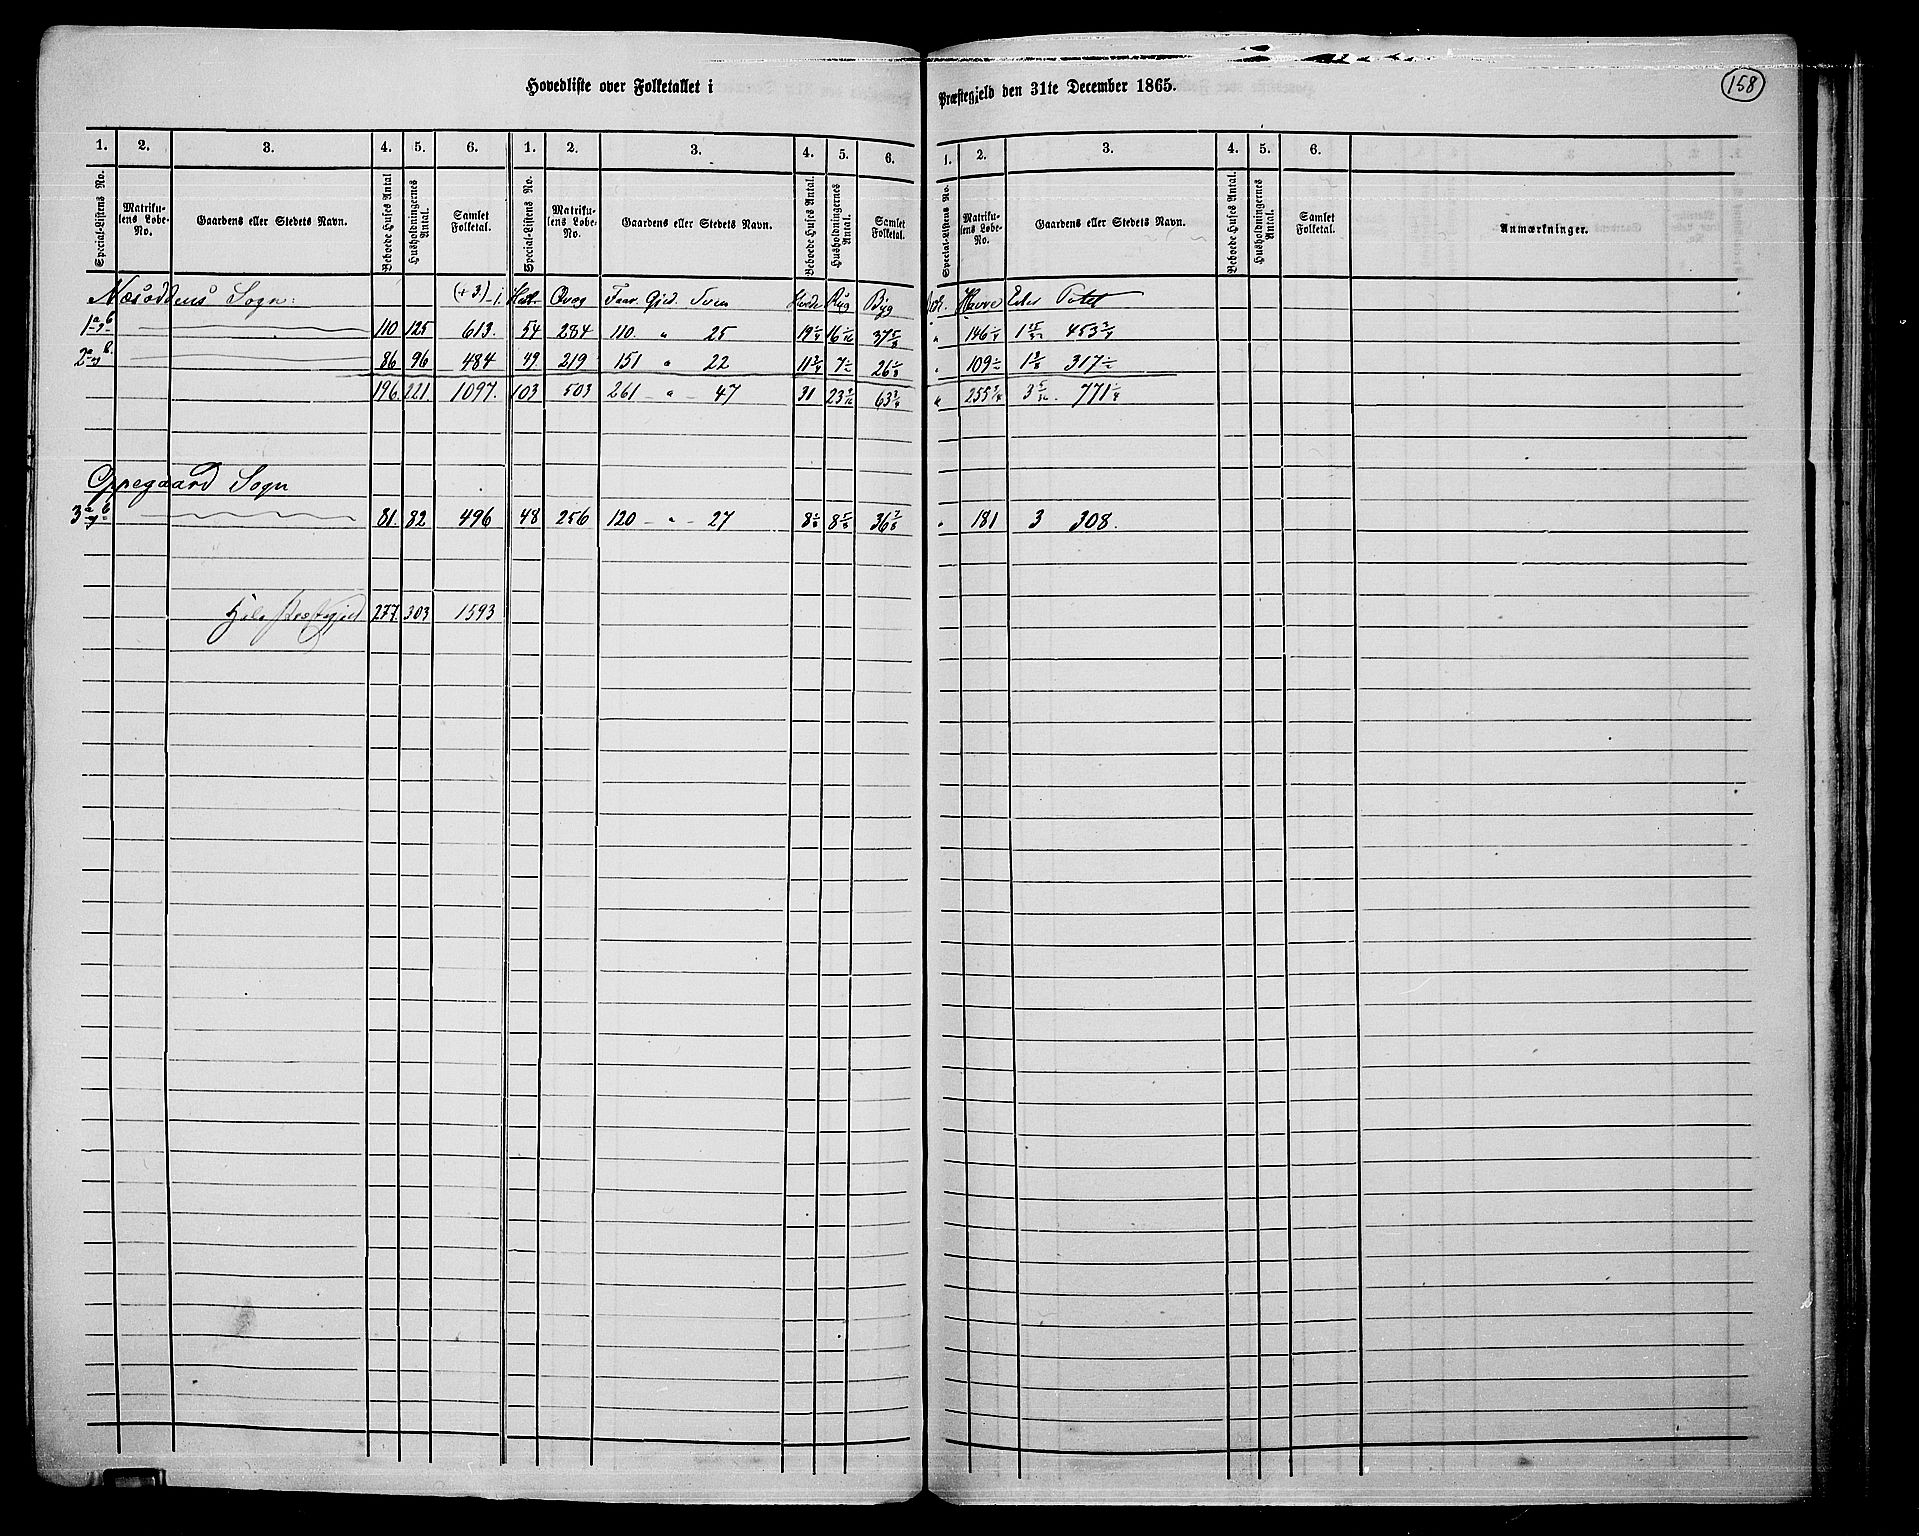 158
Hovedliste over Folketallet i Præstegjeld den 31te December 1865.
1. 2. 3. 4. 5. 6. 1. 2. 3. 4. 5. 6. 1. 2. 3. 4. 5. 6.
Special-Listens No. Matrikulens Løbe-No. Gaardens eller Stedets Navn. Beboede Huses Antal Husholdningernes Antal. Samlet Folketal. Special-Listens No. Matrikulens Løbe-No. Gaardens eller Stedets Navn. Beboede Huses Antal. Husholdningernes Antal. Samlet Folketal. Special-Listens No. Matrikulens Løbe-No. Gaardens eller Stedets Navn. Beboede Huses Antal. Husholdningernes Antal. Samlet Folketal. Anmærkninger.
Næsoddens Sogn: (+3) Hest. Qvæg Faar. Gjed. Sviin Hvede Rug Byg Havre Erter Potet
1 a b 110 125 613. 54 284 110 " 25 19 1/4 16 1/16 37 5/8 " 146 1/4 1 453 3/4
2 a b. 86 96 484 49 219 151 " 22 11 3/4 7 1/2 26 1/8 " 109 1/2 1 3/8 317 1/2
196. 221. 1097. 103 503 261 - " - 47 31 23 9/16 63 3/4 " 255 3/4 3 5/32. 771 1/4
Oppegaard Sogn
3 a b 81. 82 496 48 256 120 - " - 27 8 8 5/8 36 7/8 " 181 3 308.
Hele Præstegjeld 277. 303 1593